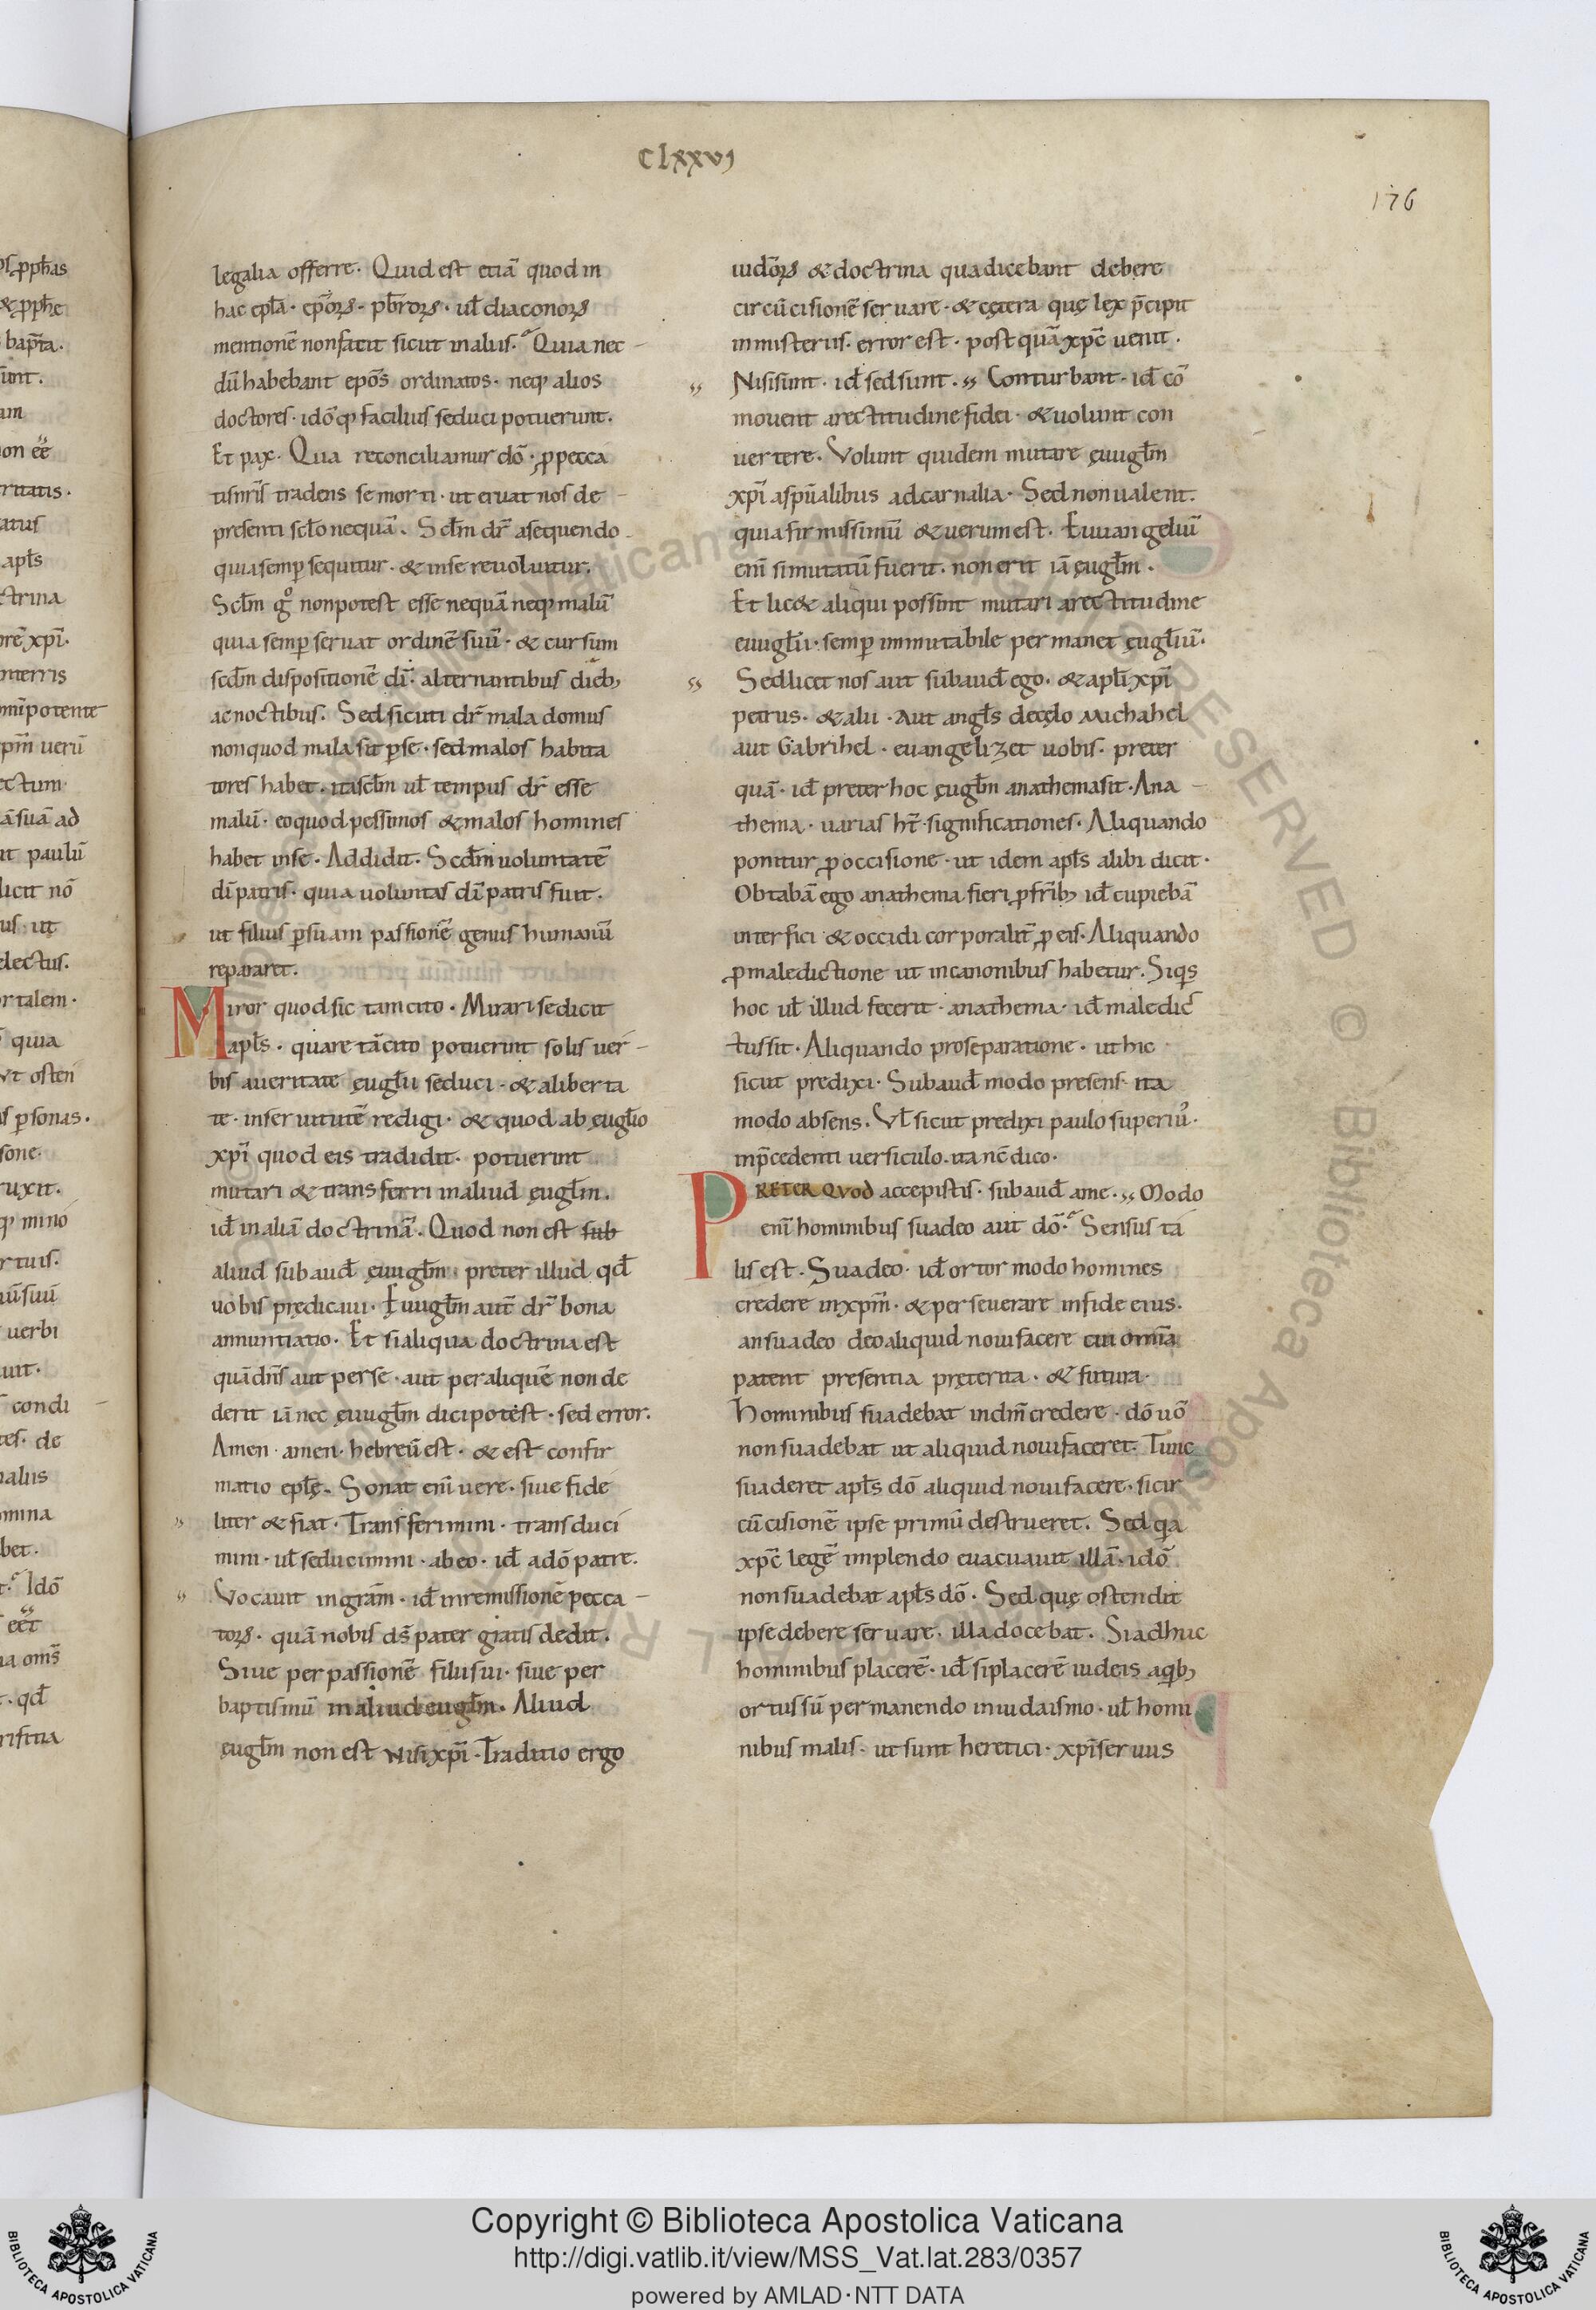 CLXXVJ
176
legalia offerre. Quid est etiā quod in
hac epl̄a. ep̄oꝝ. pb̄roꝝ. ul̄ diaconoꝝ
mentionē non facit sicut in aliis. Quia nec
dū habebant ep̄os ordinatos. neq; alios
doctores. idōq; facilius seduci potuerunt.
Et pax. Qua reconciliamur dō. ꝓ pecca
tis nr̄is tradens se morti. ut eruat nos de
presenti scl̄o nequā. Scl̄m dr̄ a sequendo
quia semꝑ sequitur. & in se reuoluitur.
Scl̄m gͦ non potest esse nequā neq; malū
quia semꝑ seruat ordinē suū. & cursum
scd̄m dispositionē dī. alternantibus dieb;
ac noctibus. Sed sicuti dr̄ mala domus
non quod mala sit ꝑ se. sed malos habita
tores habet. ita scl̄m ul̄ tempus dr̄ esse
malū. eo quod pessimos & malos homines
habet in se. Addidit. Scd̄m uoluntatē
dī patris. quia uoluntas dī patris fuit.
ut filius ꝑ suam passionē genus humanū
repararet.
Miror quod sic tam cito. Mirari se dicit
apl̄s. quare tā cito potuerint solis uer
bis a ueritate ęuugl̄ii seduci. & a liberta
te. in seruitutē redigi. & quod ab ęuugl̄io
xp̄i quod eis tradidit. potuerint
mutari & transferri in aliud ęuugl̄m.
id̄ in aliā doctrinā. Quod non est sub
aliud subaud̄ ęuugl̄m. preter illud qd̄
uobis predicaui. Euugl̄m aut̄ dr̄ bona
annuntiatio. Et si aliqua doctrina est
quā dn̄s aut per se. aut per aliquē non de
derit iā nec ęuugl̄m dici potest. sed error.
Amen. amen. hebreū est. & est confir
matio epl̄ę. Sonat eni̅ uere. siue fide
liter & fiat. Transferimini. transduci
mini. ul̄ seducimini. ab eo. id̄ a dō patre.
Vocauit in grām. id̄ in remissionē pecca
toꝝ. quā nobis ds̄ pater gratis dedit.
Siue per passionē filii sui. siue per
baptismū in aliud euugl̄m. Aliud
ęuugl̄m non est Nisi xp̄i. Traditio ergo
iudōꝝ & doctrina qua dicebant debere
circūcisionē seruare. & cętera quę lex p̄cipit
in misteriis. error est. post quā xp̄c uenit.
Nisi sunt. id̄ sed sunt. Conturbant. id̄ cō
mouent a rectitudine fidei. & uolunt con
uertere. Volunt quidem mutare ęuugl̄m
xp̄i a sp̄ualibus ad carnalia. Sed non ualent.
quia firmissimū & uerum est. Euuangeliū
eni̅ si mutatū fuerit. non erit iā ęugl̄m.
Et lic& aliqui possint mutari a rectitudine
euugl̄ii. semꝑ inmutabile permanet ęugl̄iū.
Sed licet nos aut subaud̄ ego. & apl̄i xp̄i
petrus. & alii. Aut angl̄s de cęlo Michahel
aut Gabrihel. euangelizet uobis. preter
quā. id̄ preter hoc ęugl̄m anathema sit. Ana
thema. uarias ht̄ significationes. Aliquando
ponitur ꝓ occisione. ut idem apl̄s alibi dicit.
Obtabā ego anathema fieri ꝓ fr̄ib; id̄ cupiebā
interfici & occidi corporalit̄ ꝓ eis. Aliquando
ꝓ maledictione ut in canonibus habetur. Siqs
hoc ul̄ illud fecerit. anathema. id̄ maledic
tus sit. Aliquando pro separatione. ut hic
sicut predixi. Subaud̄ modo presens. ita
modo absens. Vl̄ sicut predixi paulo superi᷒.
in p̄cedenti uersiculo. ita nc̄ dico.
PRETER QVOD accepistis. subaud̄ a me. Modo
eni̅ hominibus suadeo aut dō. Sensus ta
lis est. Suadeo. id̄ ortor modo homines
credere in xp̄m. & perseuerare in fide eius.
an suadeo deo aliquid noui facere cui omīa
patent presentia pręterita. & futura.
Hominibus suadebat in dn̄m credere. dō uō
non suadebat ut aliquid noui faceret. Tunc
suaderet apl̄s dō aliquid noui facere. si cir
cūcisionē ipse primū destrueret. Sed qa
xp̄c legē implendo euacuauit illā. idō
non suadebat apl̄s dō. Sed quę ostendit
ipse debere seruare. illa docebat. Si adhuc
hominibus placerē. id̄ si placerē iudeis a qb;
ortus sū permanendo in iudaismo. ul̄ homi
nibus malis. ut sunt heretici. xp̄i seruus
Copyright © Biblioteca Apostolica Vaticana
http://digi.vatlib.it/view/MSS_Vat.lat.283/0357
powered by AMLAD·NTT DATA